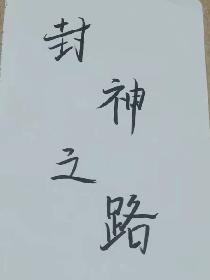 封神之路